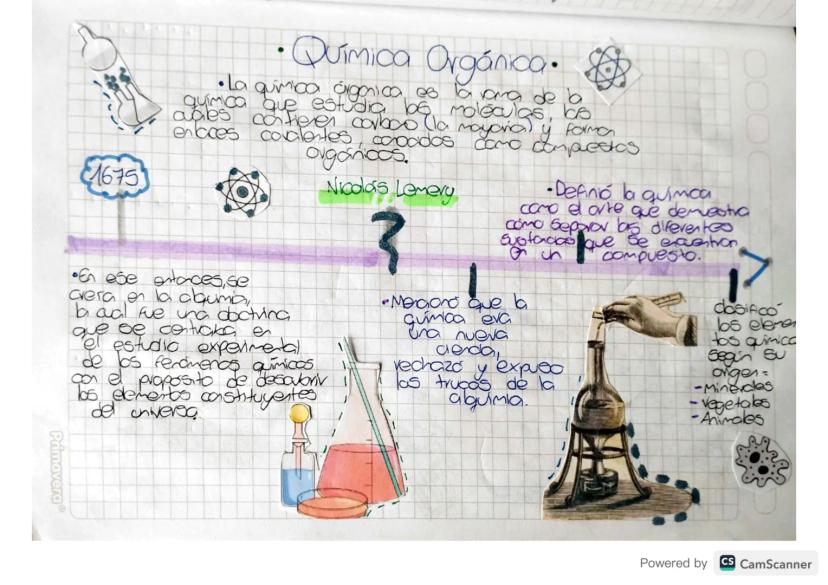 • Química Orgánica •
• La química órganica es la rama de la
química que estudia las moléculas, las
cuales contienen carbono (la mayoría) y forman
enlaces covalentes, conocidos como compuestos
orgánicos.
1675
Nicolás Lemery
• Definió la química
como el arte que demuestra
cómo separar las diferentes
sustancias que se encuentran
en un compuesto.
• En ese entonces, se
creía en la alquimia,
la cual fue una doctrina
que se centraba en
el estudio experimental
de los fenómenos químicos
con el propósito de descubrir
los elementos constituyentes
del universo.
• Mencionó que la
química era
una nueva
ciencia,
rechazó y expuso
los trucos de la
alquimia.
clasificó
los elemen
tos química
según su
origen:
- Minerales
- Vegetales
- Animales
Primavera
Powered by CS CamScanner